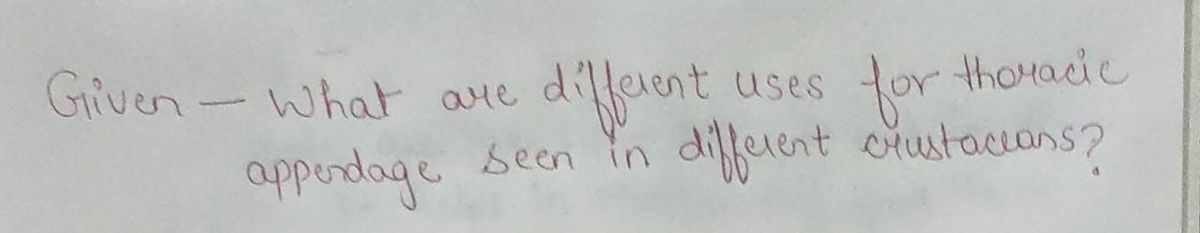 Given – What are different uses for thoracic
appendage seen in different crustaceans?